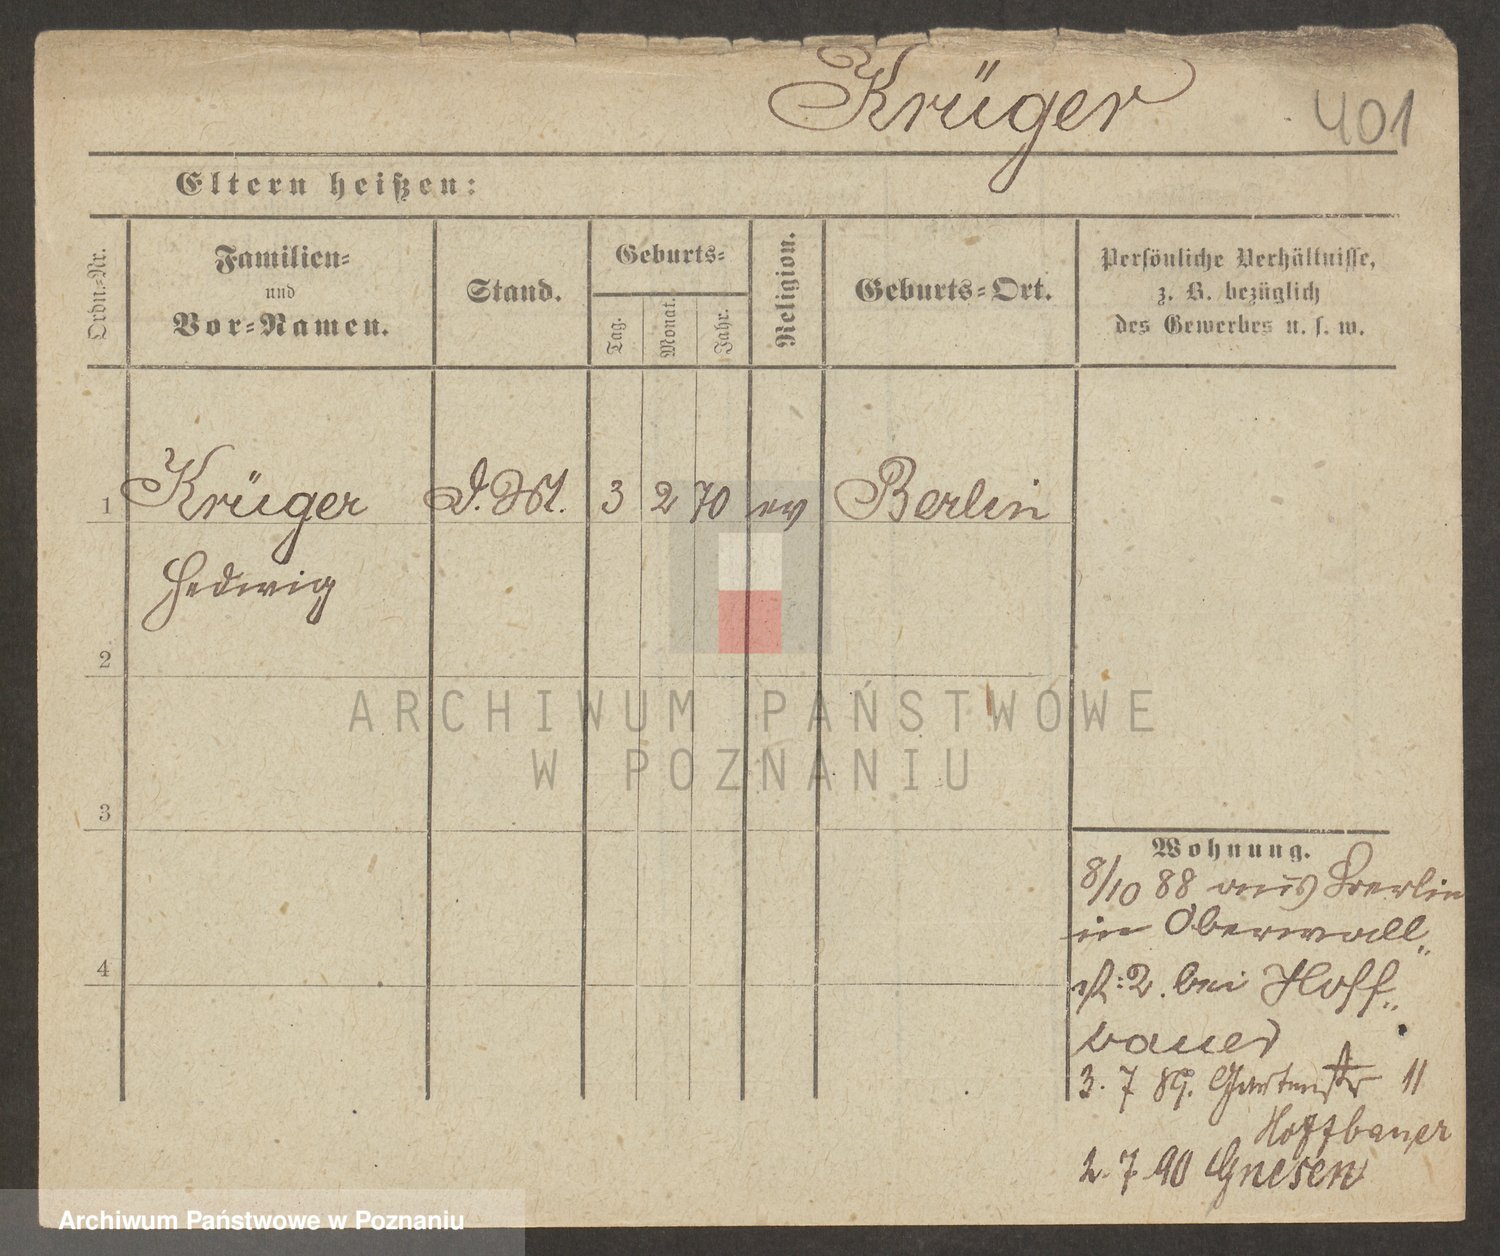 Krüger
401
Eltern heißen:
Ordn.=Nr.
Familien=
und
Vor=Namen.
Stand.
Geburts=
Tag.
Monat.
Jahr.
Religion.
Geburts=Ort.
Persönliche Verhältnisse,
z. B. bezüglich
des Gewerbes u. s. w.
1 Krüger D.M. 3 2 70 ev Berlin
Hedwig
2
ARCHIWUM PAŃSTWOWE
W POZNANIU
3
Wohnung.
8/10 88 aus Berlin
in Oberwall„
st: 2. bei Hoff„
bauer
4
3. 7 89. Gartenstr 11
Hoffbauer
2. 7 90 Gnesen
Archiwum Państwowe w Poznaniu